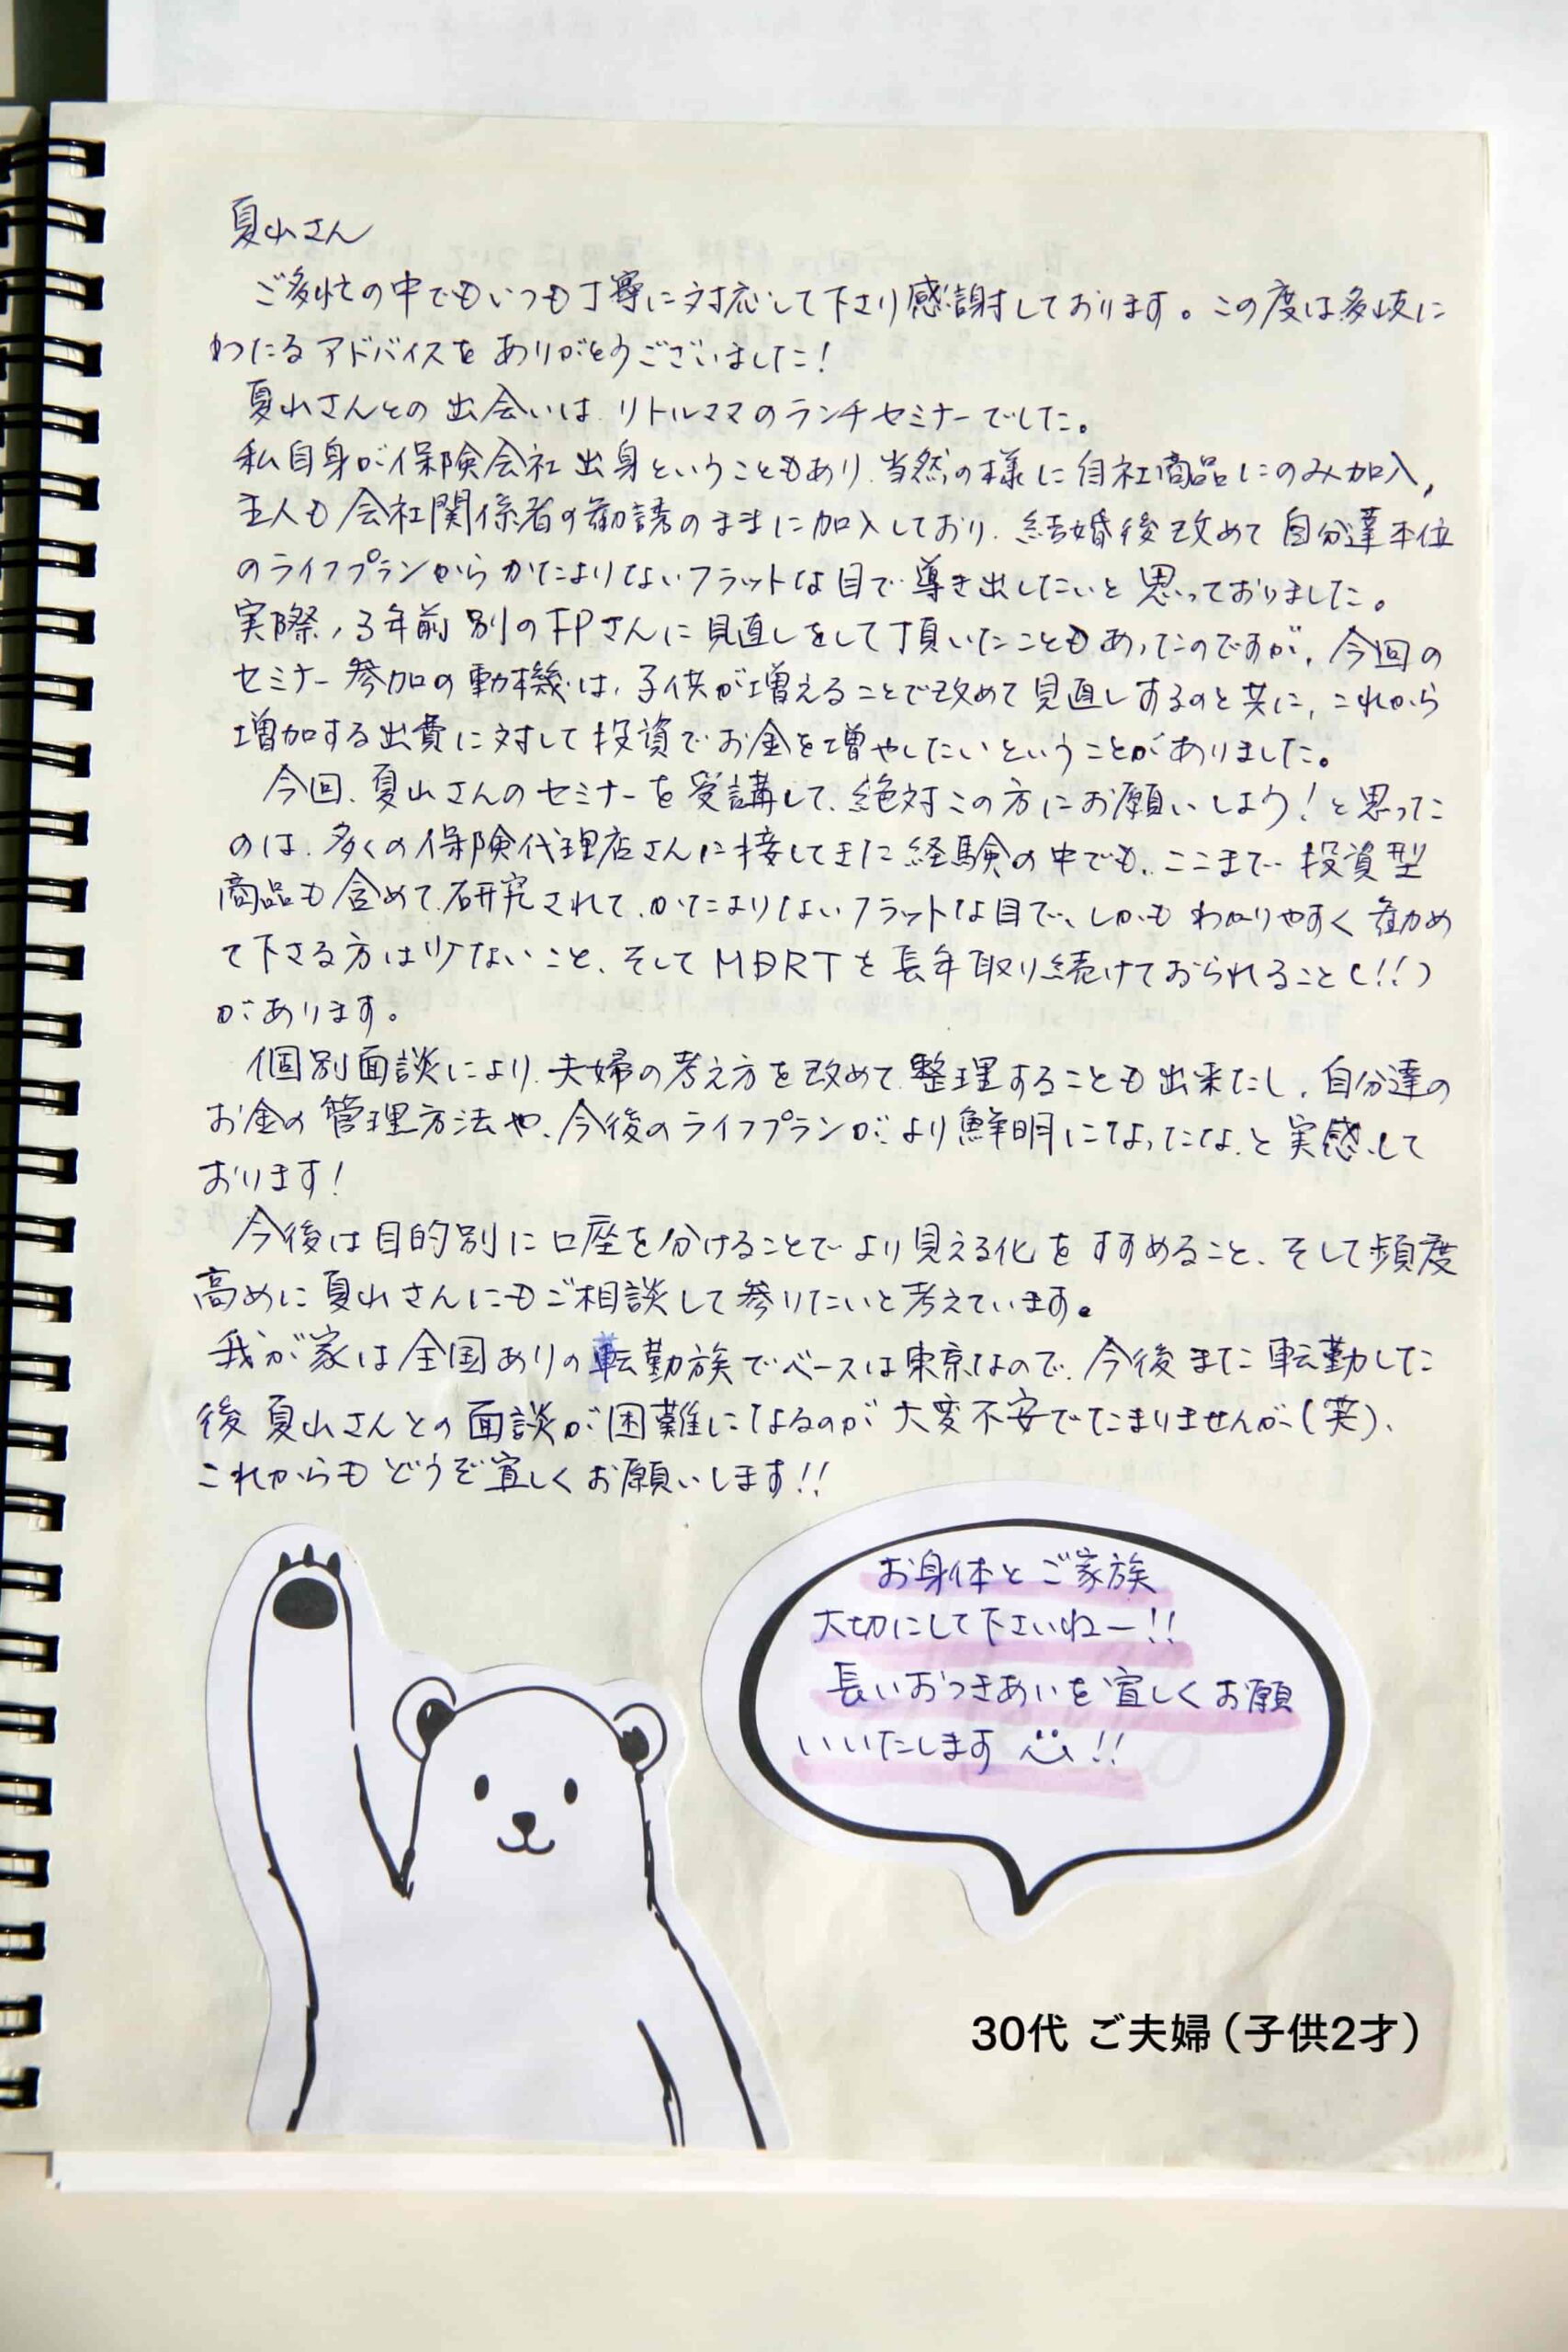 夏山さん
ご多忙の中でもいつも丁寧に対応して下さり感謝しております。この度は多岐に
わたるアドバイスをありがとうございました！
夏山さんとの出会いは、リトルママのランチセミナーでした。
私自身が保険会社出身ということもあり、当然の様に自社商品にのみ加入、
主人も会社関係者の勧誘のままに加入しており、結婚後改めて自分達本位
のライフプランからかたよりないフラットな目で導き出したいと思っておりました。
実際、3年前別のFPさんに見直しをして頂いたこともあったのですが、今回の
セミナー参加の動機は、子供が増えることで改めて見直しするのと共に、これから
増加する出費に対して投資でお金を増やしたいということがありました。
今回、夏山さんのセミナーを受講して、絶対この方にお願いしよう！と思った
のは、多くの保険代理店さんに接してきた経験の中でも、ここまで投資型
商品も含めて研究されて、かたよりないフラットな目で、しかもわかりやすく勧め
て下さる方は少ないこと、そしてMDRTを長年取り続けておられること(!!)
があります。
個別面談により、夫婦の考え方を改めて整理することも出来たし、自分達の
お金の管理方法や、今後のライフプランがより鮮明になったな、と実感して
おります！
今後は目的別に口座を分けることでより見える化をすすめること、そして頻度
高めに夏山さんにもご相談して参りたいと考えています。
我が家は全国ありの転勤族でベースは東京なので、今後また転勤した
後夏山さんとの面談が困難になるのが大変不安でたまりませんが(笑)、
これからもどうぞ宜しくお願いします!!
お身体とご家族
大切にして下さいねー!!
長いおつきあいを宜しくお願
いいたします!!
30代 ご夫婦（子供2才）